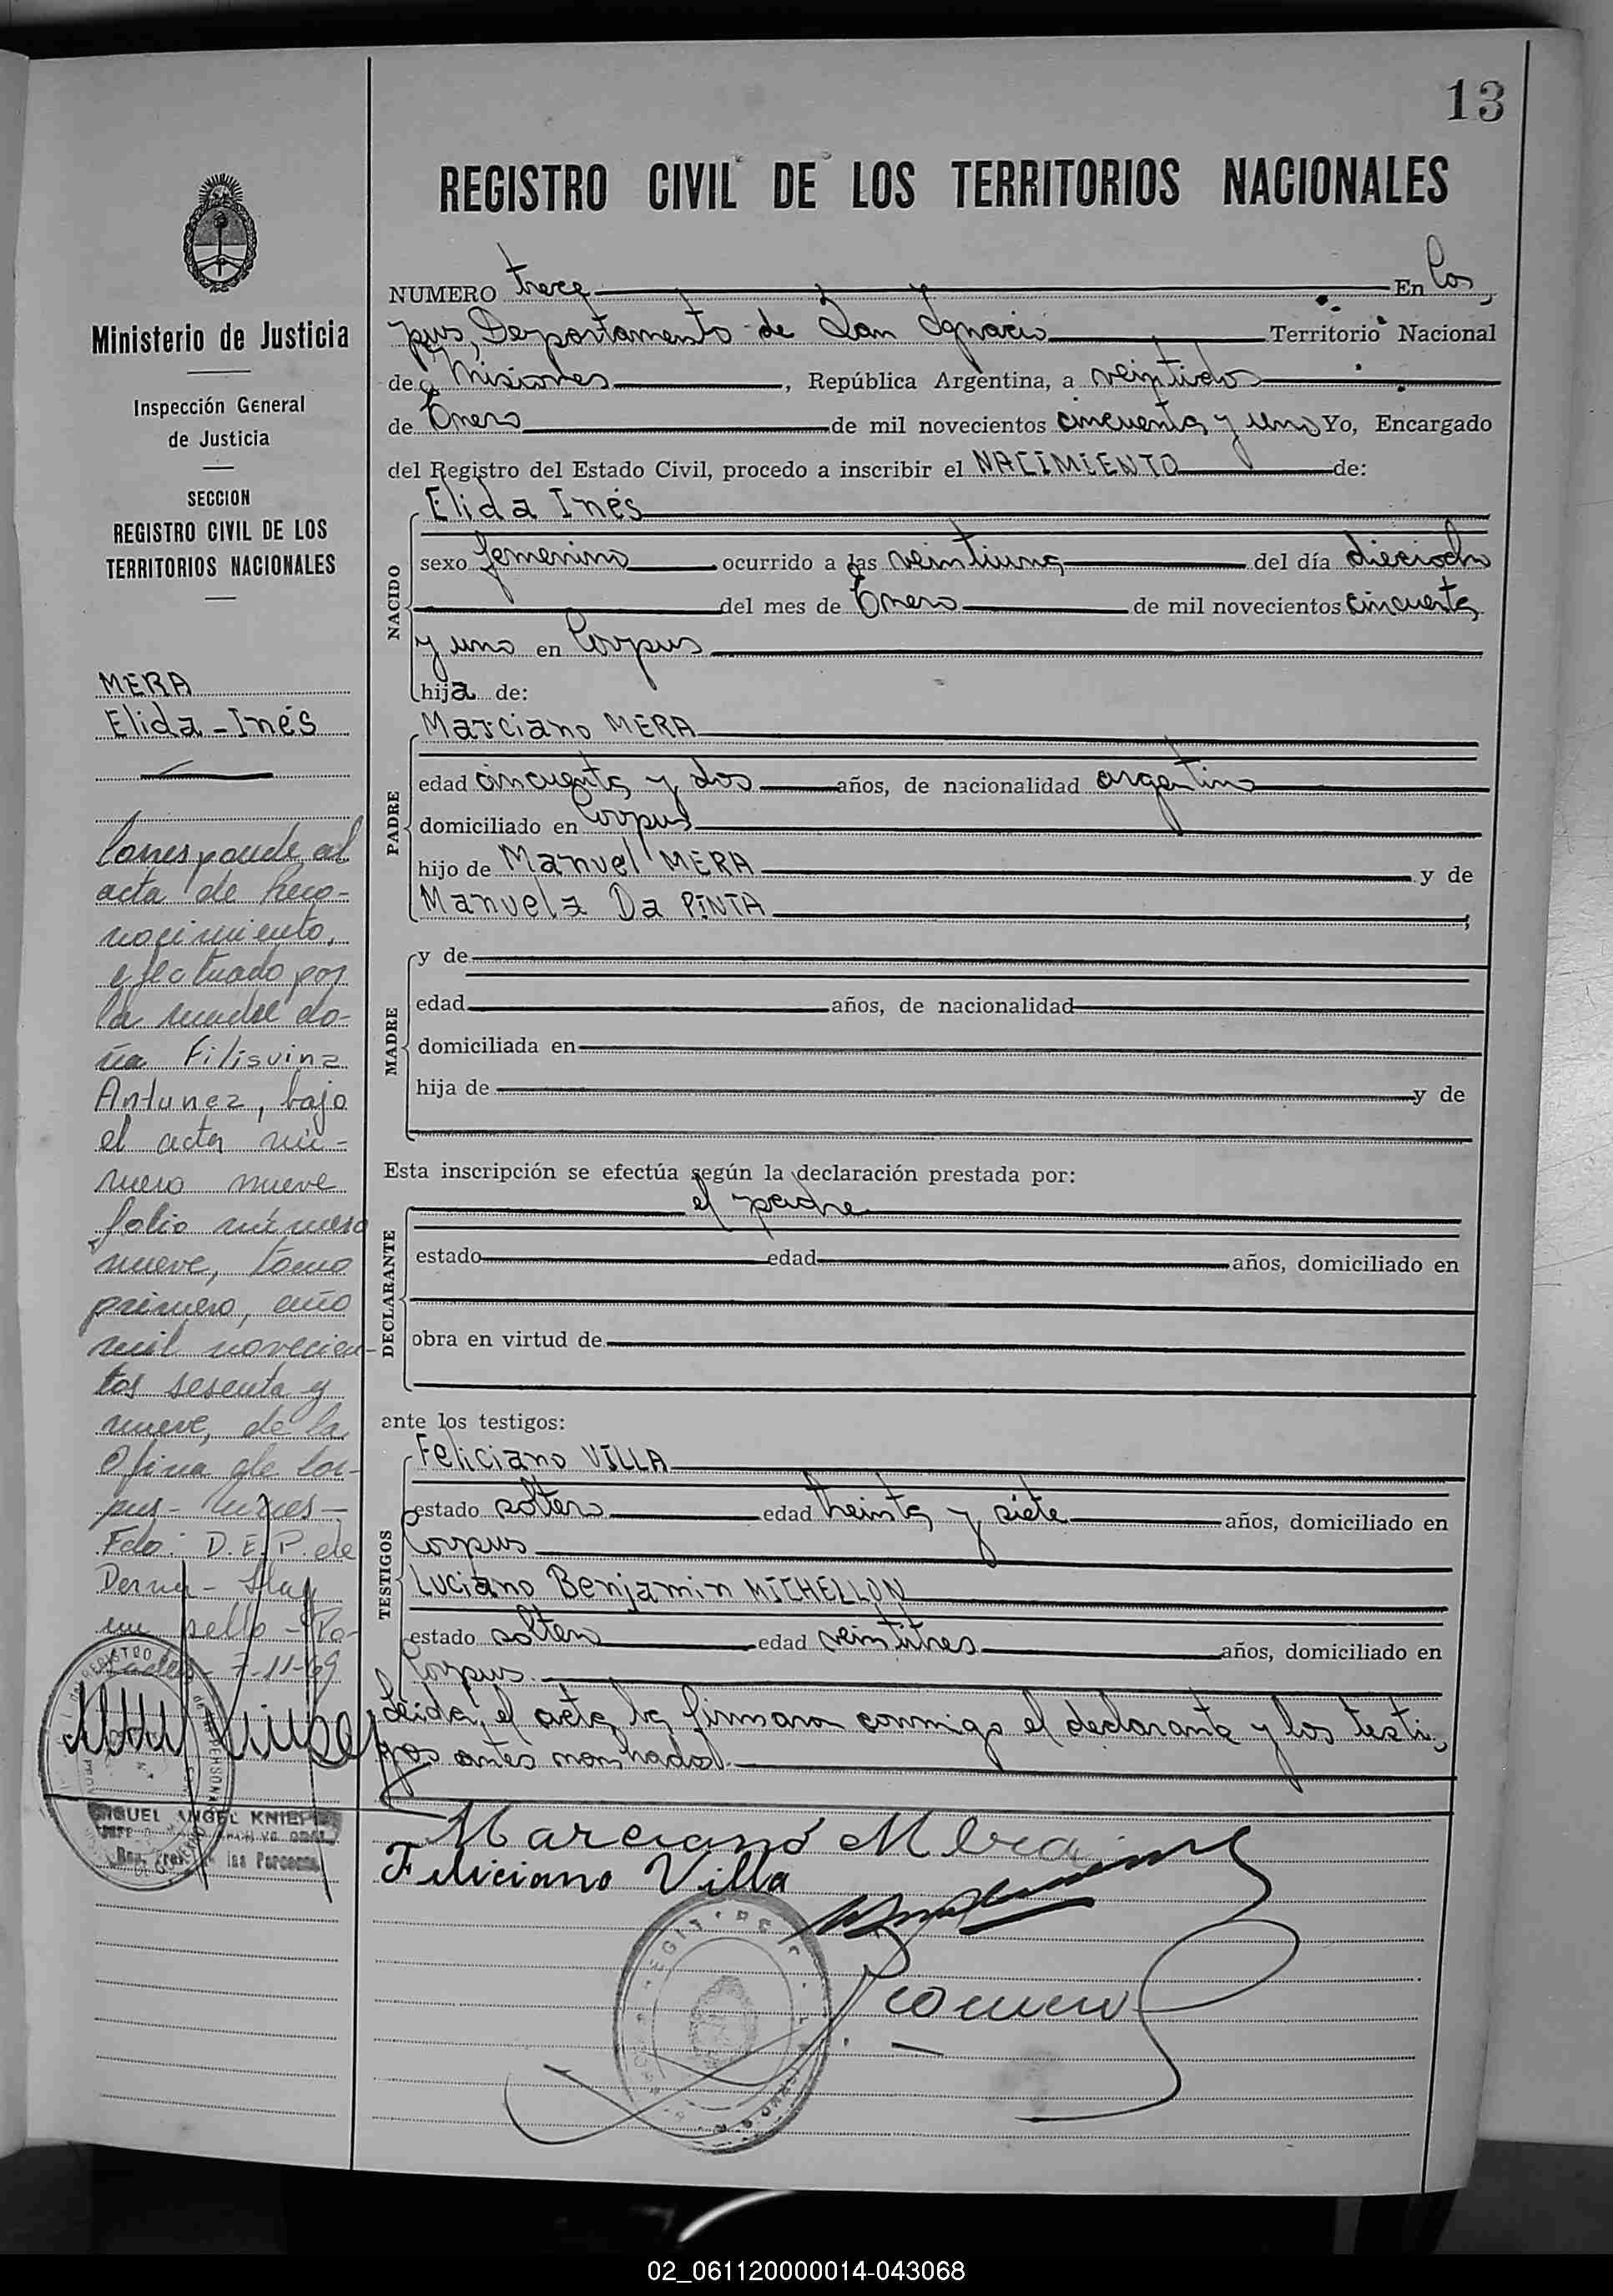 13
REGISTRO CIVIL DE LOS TERRITORIOS NACIONALES
Ministerio de Justicia
Inspección General
de Justicia
SECCION
REGISTRO CIVIL DE LOS
TERRITORIOS NACIONALES
MERA
Elida-Inés
Corresponde al
acta de reco-
nocimiento,
efectuado por
la madre do-
ña Filisvina
Antunez, bajo
el acta nú-
mero nueve
folio número
nueve, tomo
primero, año
mil novecien-
tos sesenta y
nueve, de la
Ofina de Cor-
pus-
Fdo: D.E.P. de
Derna- Hay
un sello - Po-
sadas- 7-11-69
MIGUEL ANGEL KNIEP
las Personas
NUMERO trece En Cor
pus, Departamento de San Ignacio Territorio Nacional
de Misiones, República Argentina, a veintidos
de Enero de mil novecientos cincuenta y uno Yo, Encargado
del Registro del Estado Civil, procedo a inscribir el NACIMIENTO de:
NACIDO
Elida Inés
sexo femenino ocurrido a las veintiuna del día dieciocho
del mes de Enero de mil novecientos cincuenta
y uno en Corpus
hija de:
PADRE
Marciano MERA
edad cincuenta y dos años, de nacionalidad argentino
domiciliado en Corpus
hijo de Manuel MERA y de
Manuela Da PINTA;
MADRE
y de
edad años, de nacionalidad
domiciliada en
hija de y de
Esta inscripción se efectúa según la declaración prestada por:
DECLARANTE
el padre
estado edad años, domiciliado en
obra en virtud de
ante los testigos:
TESTIGOS
Feliciano VILLA
estado soltero edad treinta y siete años, domiciliado en
Corpus
Luciano Benjamin MICHELLON
estado soltero edad veintitres años, domiciliado en
Corpus.
Leida el acta la firmaron conmigo el declarante y los testi
gos antes nombrados.
Marciano Mera
Feliciano Villa
Romero
02_061120000014-043068